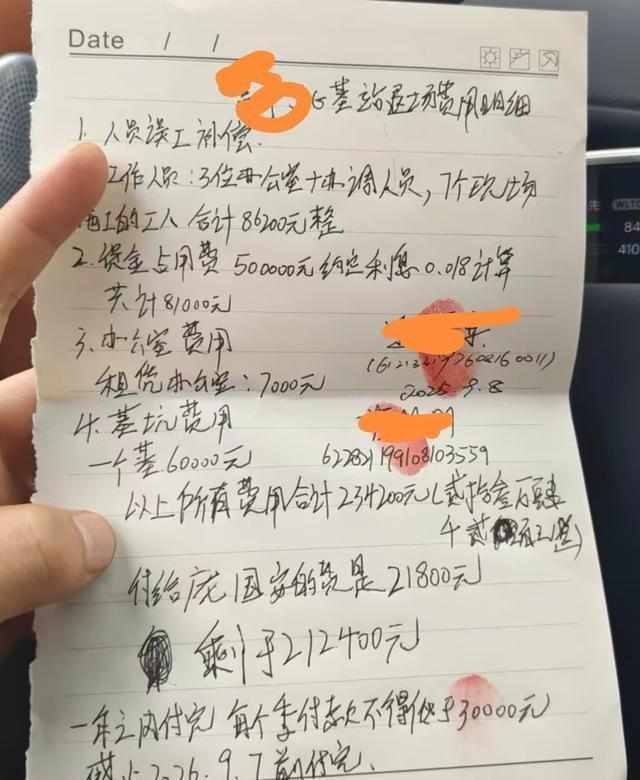 Date / /
G基站退场费用明细
1. 人员误工补偿.
工作人员:3位办公室+协调人员, 7个现场
施工的工人 合计86200元整
2. 资金占用费 500000元约定利息0.018计算
共计81000元
3. 办公室费用
租凭办公室:7000元
2025.9.8
4. 基坑费用
一个基60000元
以上所有费用合计234200元(贰拾叁万肆
仟贰佰元整)
付给庞国安的凭是21800元
剩于212400元
一年之内付完 每个季付款不得低于30000元
截止2026.9.7前付完.